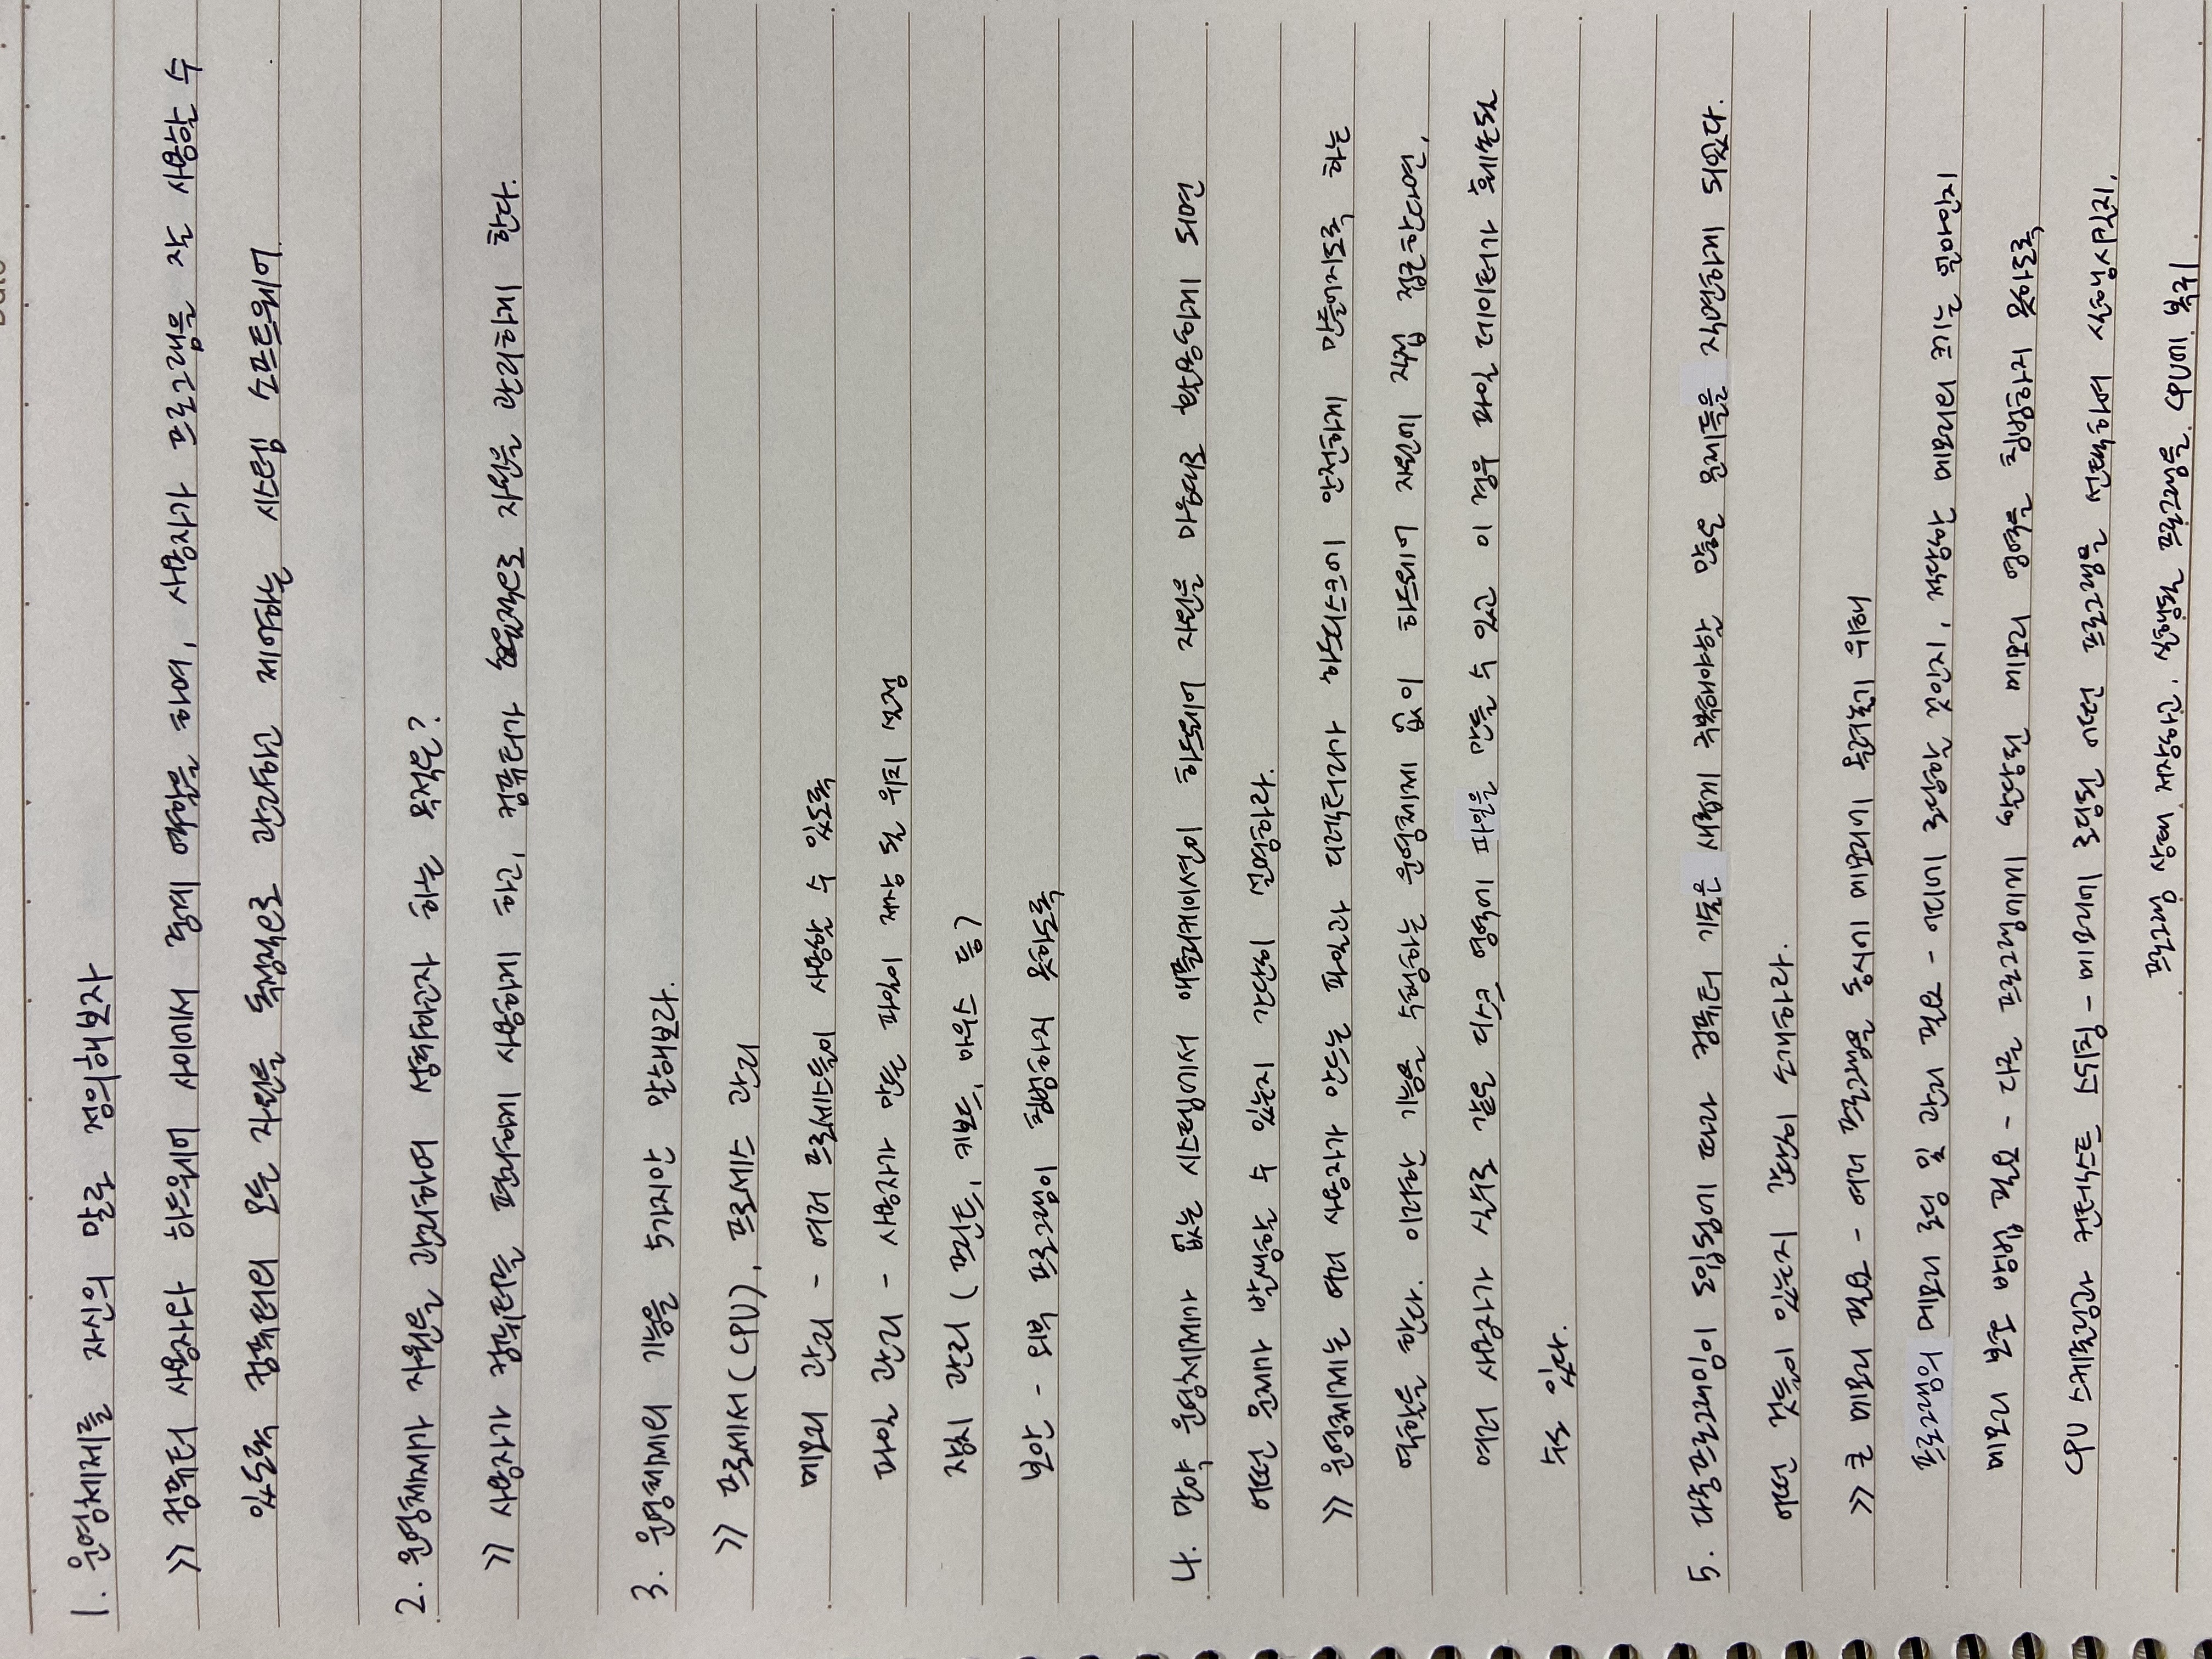 Date
1. 운영체제를 자신의 말로 정의해보자
>> 컴퓨터 사용자와 하드웨어 사이에서 중계 역할을 하여, 사용자가 프로그램을 잘 사용할 수
있도록 컴퓨터의 모든 자원을 독점적으로 관리하고 제어하는 시스템 소프트웨어.
2. 운영체제가 자원을 관리하여 성취하고자 하는 목적은?
>> 사용자가 컴퓨터를 편리하게 사용하게 하고, 컴퓨터가 효율적으로 자원을 관리하게 한다.
3. 운영체제의 기능을 5가지만 말해보라.
>> 프로세서(CPU), 프로세스 관리
메모리 관리 - 여러 프로세스들이 사용할 수 있도록
파일 관리 - 사용자가 만든 파일이 저장 될 위치 설정
장치 관리 (프린트, 키보드, 마우스 등)
보안 - 외부 프로그램이 침범하지 못하도록
4. 만약 운영체제가 없는 시스템에서 애플리케이션이 하드웨어 자원을 마음대로 활용하게 되면
어떤 문제가 발생할 수 있는지 간단히 설명하라.
>> 운영체제는 여러 사용자가 만드는 파일과 디렉터리가 하드디스크에 안전하게 만들어지도록 하는
역할을 한다. 이러한 기능을 수행하는 운영체제 없이 하드웨어 자원에 직접 접근한다면,
여러 사용자가 실수로 같은 디스크 영역에 파일을 만들 수 있고 이 경우 파일 데이터가 훼손될
수도 있다.
5. 다중프로그래밍이 도입됨에 따라 컴퓨터 기술은 새롭게 극복해야할 많은 문제들을 직면하게 되었다.
어떤 것들이 있는지 간단히 소개하라.
>> 큰 메모리 필요 - 여러 프로그램을 동시에 메모리에 올려놓기 위해
프로그램의 메모리 로딩 및 관리 필요 - 어디에 로딩할 것인지, 적당한 메모리의 크기는 얼마인지
메모리 보호 방법 필요 - 다른 프로그램에게 할당된 메모리 영역을 침범하지 못하도록
CPU 스케줄링과 컨텍스트 스위칭 - 메모리에 로딩된 어떤 프로그램을 선택하여 실행시킬지,
프로그램 상태 저장하고, 실행될 프로그램을 CPU에 복귀